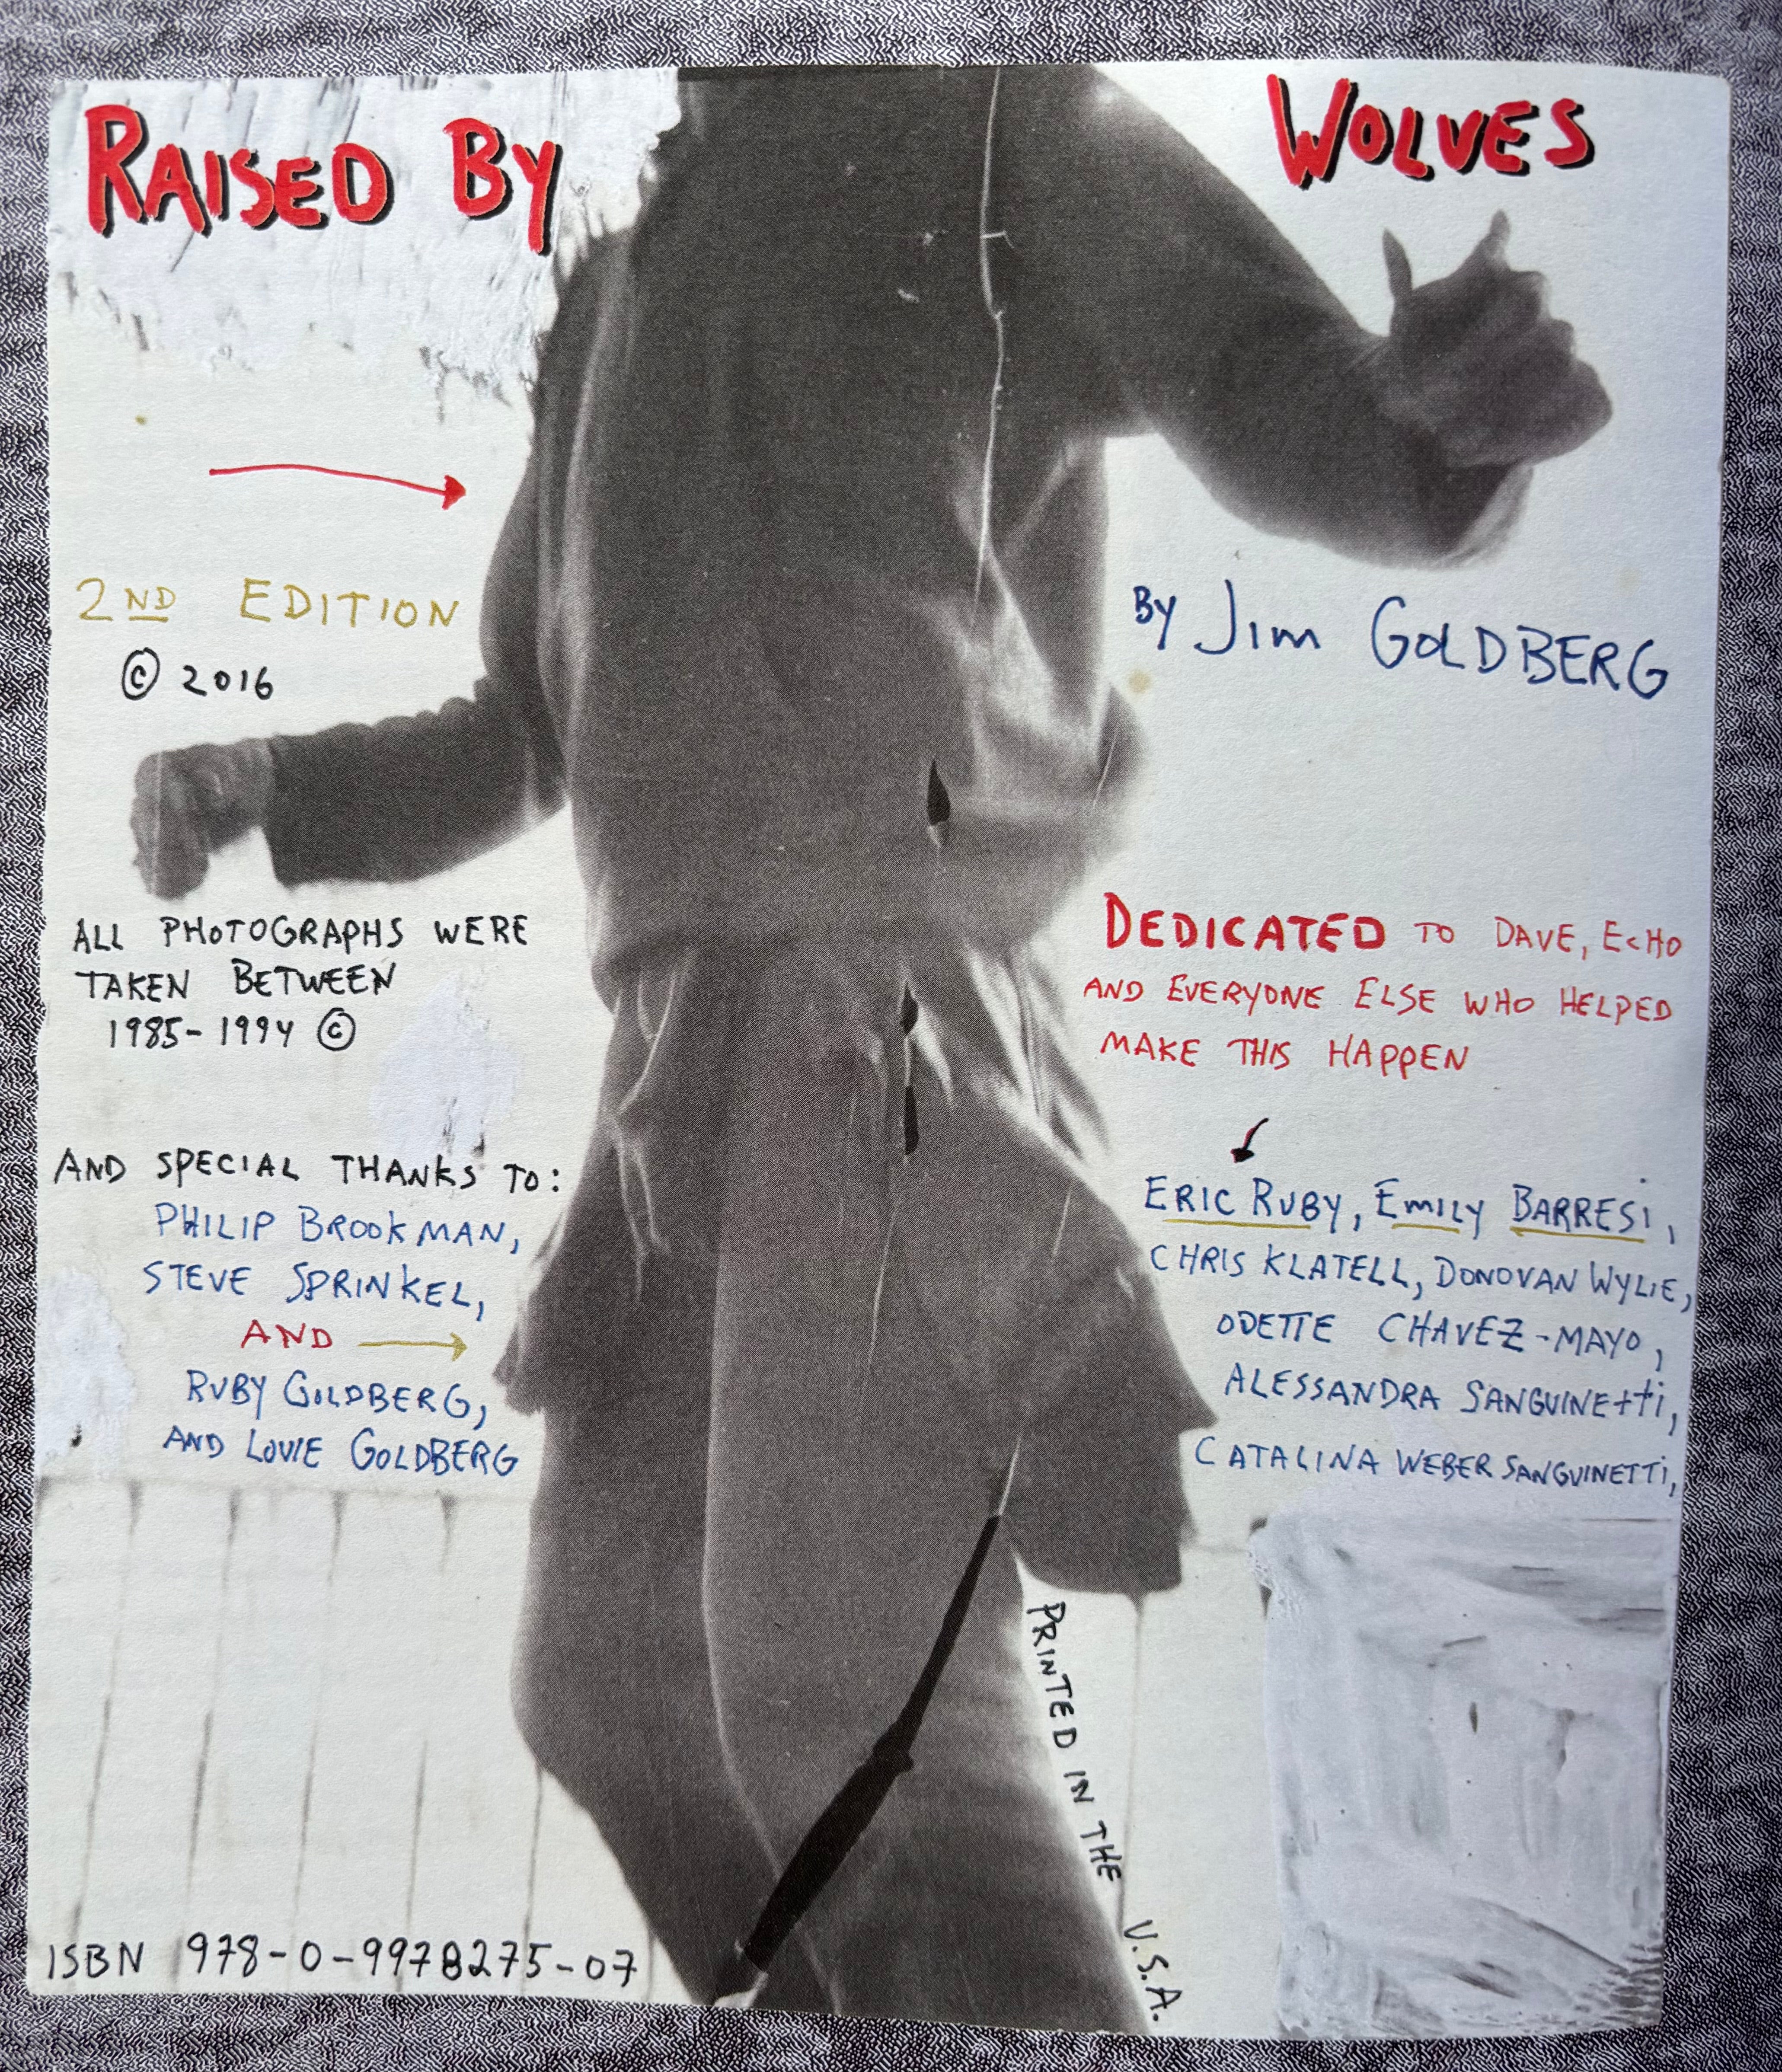 RAISED BY WOLVES
2ND EDITION
© 2016
BY JIM GOLDBERG
ALL PHOTOGRAPHS WERE
TAKEN BETWEEN
1985-1994 ©
DEDICATED TO DAVE, ECHO
AND EVERYONE ELSE WHO HELPED
MAKE THIS HAPPEN
AND SPECIAL THANKS TO:
PHILIP BROOKMAN,
STEVE SPRINKEL,
AND
RUBY GOLDBERG,
AND LOUIE GOLDBERG
ERIC RUBY, EMILY BARRESI,
CHRIS KLATELL, DONOVAN WYLIE,
ODETTE CHAVEZ-MAYO,
ALESSANDRA SANGUINEtti,
CATALINA WEBER SANGUINETTI,
PRINTED IN THE U.S.A.
ISBN 978-0-9978275-07